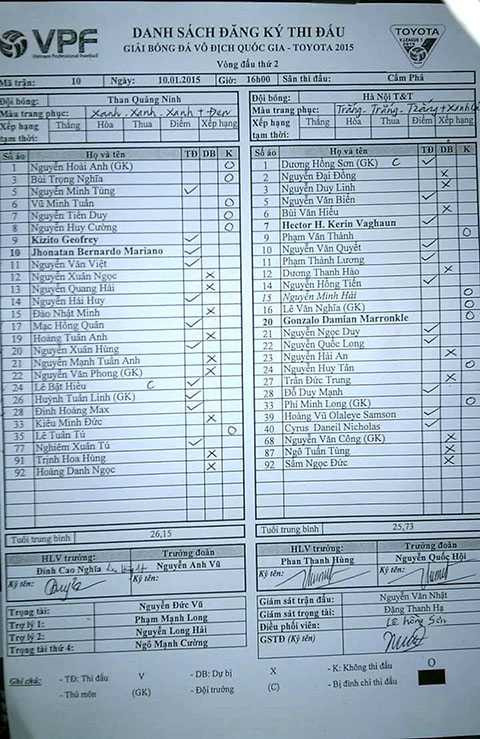 VPF
Vietnam Professional Football
DANH SÁCH ĐĂNG KÝ THI ĐẤU
GIẢI BÓNG ĐÁ VÔ ĐỊCH QUỐC GIA - TOYOTA 2015
Vòng đấu thứ 2
TOYOTA
V.LEAGUE 1
2015
Mã trận: 10 Ngày: 10.01.2015 Giờ: 16h00 Sân thi đấu: Cẩm Phả
Đội bóng: Than Quảng Ninh
Màu trang phục: Xanh - Xanh - Xanh + Đen
Xếp hạng tạm thời: Thắng Hòa Thua Điểm Xếp hạng
Số áo Họ và tên TĐ DB K
1 Nguyễn Hoài Anh (GK) O
3 Bùi Trọng Nghĩa O
5 Nguyễn Minh Tùng ✓
6 Vũ Minh Tuấn O
7 Nguyễn Tiến Duy O
8 Nguyễn Huy Cường O
9 Kizito Geofrey ✓
10 Jhonatan Bernardo Mariano ✓
11 Nguyễn Văn Việt ✓
12 Nguyễn Xuân Ngọc X
13 Nguyễn Quang Hải X
14 Nguyễn Hải Huy ✓
15 Đào Nhật Minh X
17 Mạc Hồng Quân ✓
19 Hoàng Tuấn Anh X
20 Nguyễn Xuân Hùng ✓
21 Nguyễn Mạnh Tuấn Anh X
22 Nguyễn Văn Phong (GK) X
24 Lê Bật Hiếu C ✓
26 Huỳnh Tuấn Linh (GK) ✓
28 Đinh Hoàng Max ✓
33 Kiều Minh Đức X
35 Lê Tuấn Tú O
77 Nghiêm Xuân Tú ✓
91 Trịnh Hoa Hùng X
92 Hoàng Danh Ngọc X
Tuổi trung bình 26,15
HLV trưởng: Trưởng đoàn
Đinh Cao Nghĩa Nguyễn Anh Vũ
Ký tên: Ký tên:
Trọng tài: Nguyễn Đức Vũ
Trợ lý 1: Phạm Mạnh Long
Trợ lý 2: Nguyễn Long Hải
Trọng tài thứ 4: Ngô Mạnh Cường
Đội bóng: Hà Nội T&T
Màu trang phục: Trắng - Trắng - Trắng + Xanh
Xếp hạng tạm thời: Thắng Hòa Thua Điểm Xếp hạng
Số áo Họ và tên TĐ DB K
1 Dương Hồng Sơn (GK) C ✓
2 Nguyễn Đại Đồng X
3 Nguyễn Duy Linh X
5 Nguyễn Văn Biển ✓
6 Bùi Văn Hiếu X
7 Hector H. Kerin Vaghaun ✓
9 Phạm Văn Thành O
10 Nguyễn Văn Quyết ✓
11 Phạm Thành Lương ✓
12 Dương Thanh Hào X
14 Nguyễn Hồng Tiến ✓
15 Nguyễn Minh Hải O
16 Lê Văn Nghĩa (GK) O
20 Gonzalo Damian Marronkle O
21 Nguyễn Ngọc Duy ✓
22 Nguyễn Quốc Long ✓
23 Nguyễn Hải An X
24 Nguyễn Huy Tân O
27 Trần Đức Trung X
28 Đỗ Duy Mạnh ✓
33 Phí Minh Long (GK) O
39 Hoàng Vũ Olaleye Samson ✓
40 Cyrus Daneil Nicholas ✓
68 Nguyễn Văn Công (GK) X
87 Ngô Tuấn Tùng X
92 Sầm Ngọc Đức X
Tuổi trung bình 25,73
HLV trưởng: Trưởng đoàn
Phan Thanh Hùng Nguyễn Quốc Hội
Ký tên: Ký tên:
Giám sát trận đấu: Nguyễn Văn Nhật
Giám sát trọng tài: Đặng Thanh Hạ
Điều phối viên: Lê Hồng Sơn
GSTĐ (Ký tên)
Ghi chú: - TĐ: Thi đấu V - DB: Dự bị X - K: Không thi đấu O
- Thủ môn (GK) - Đội trưởng (C) - Bị đình chỉ thi đấu